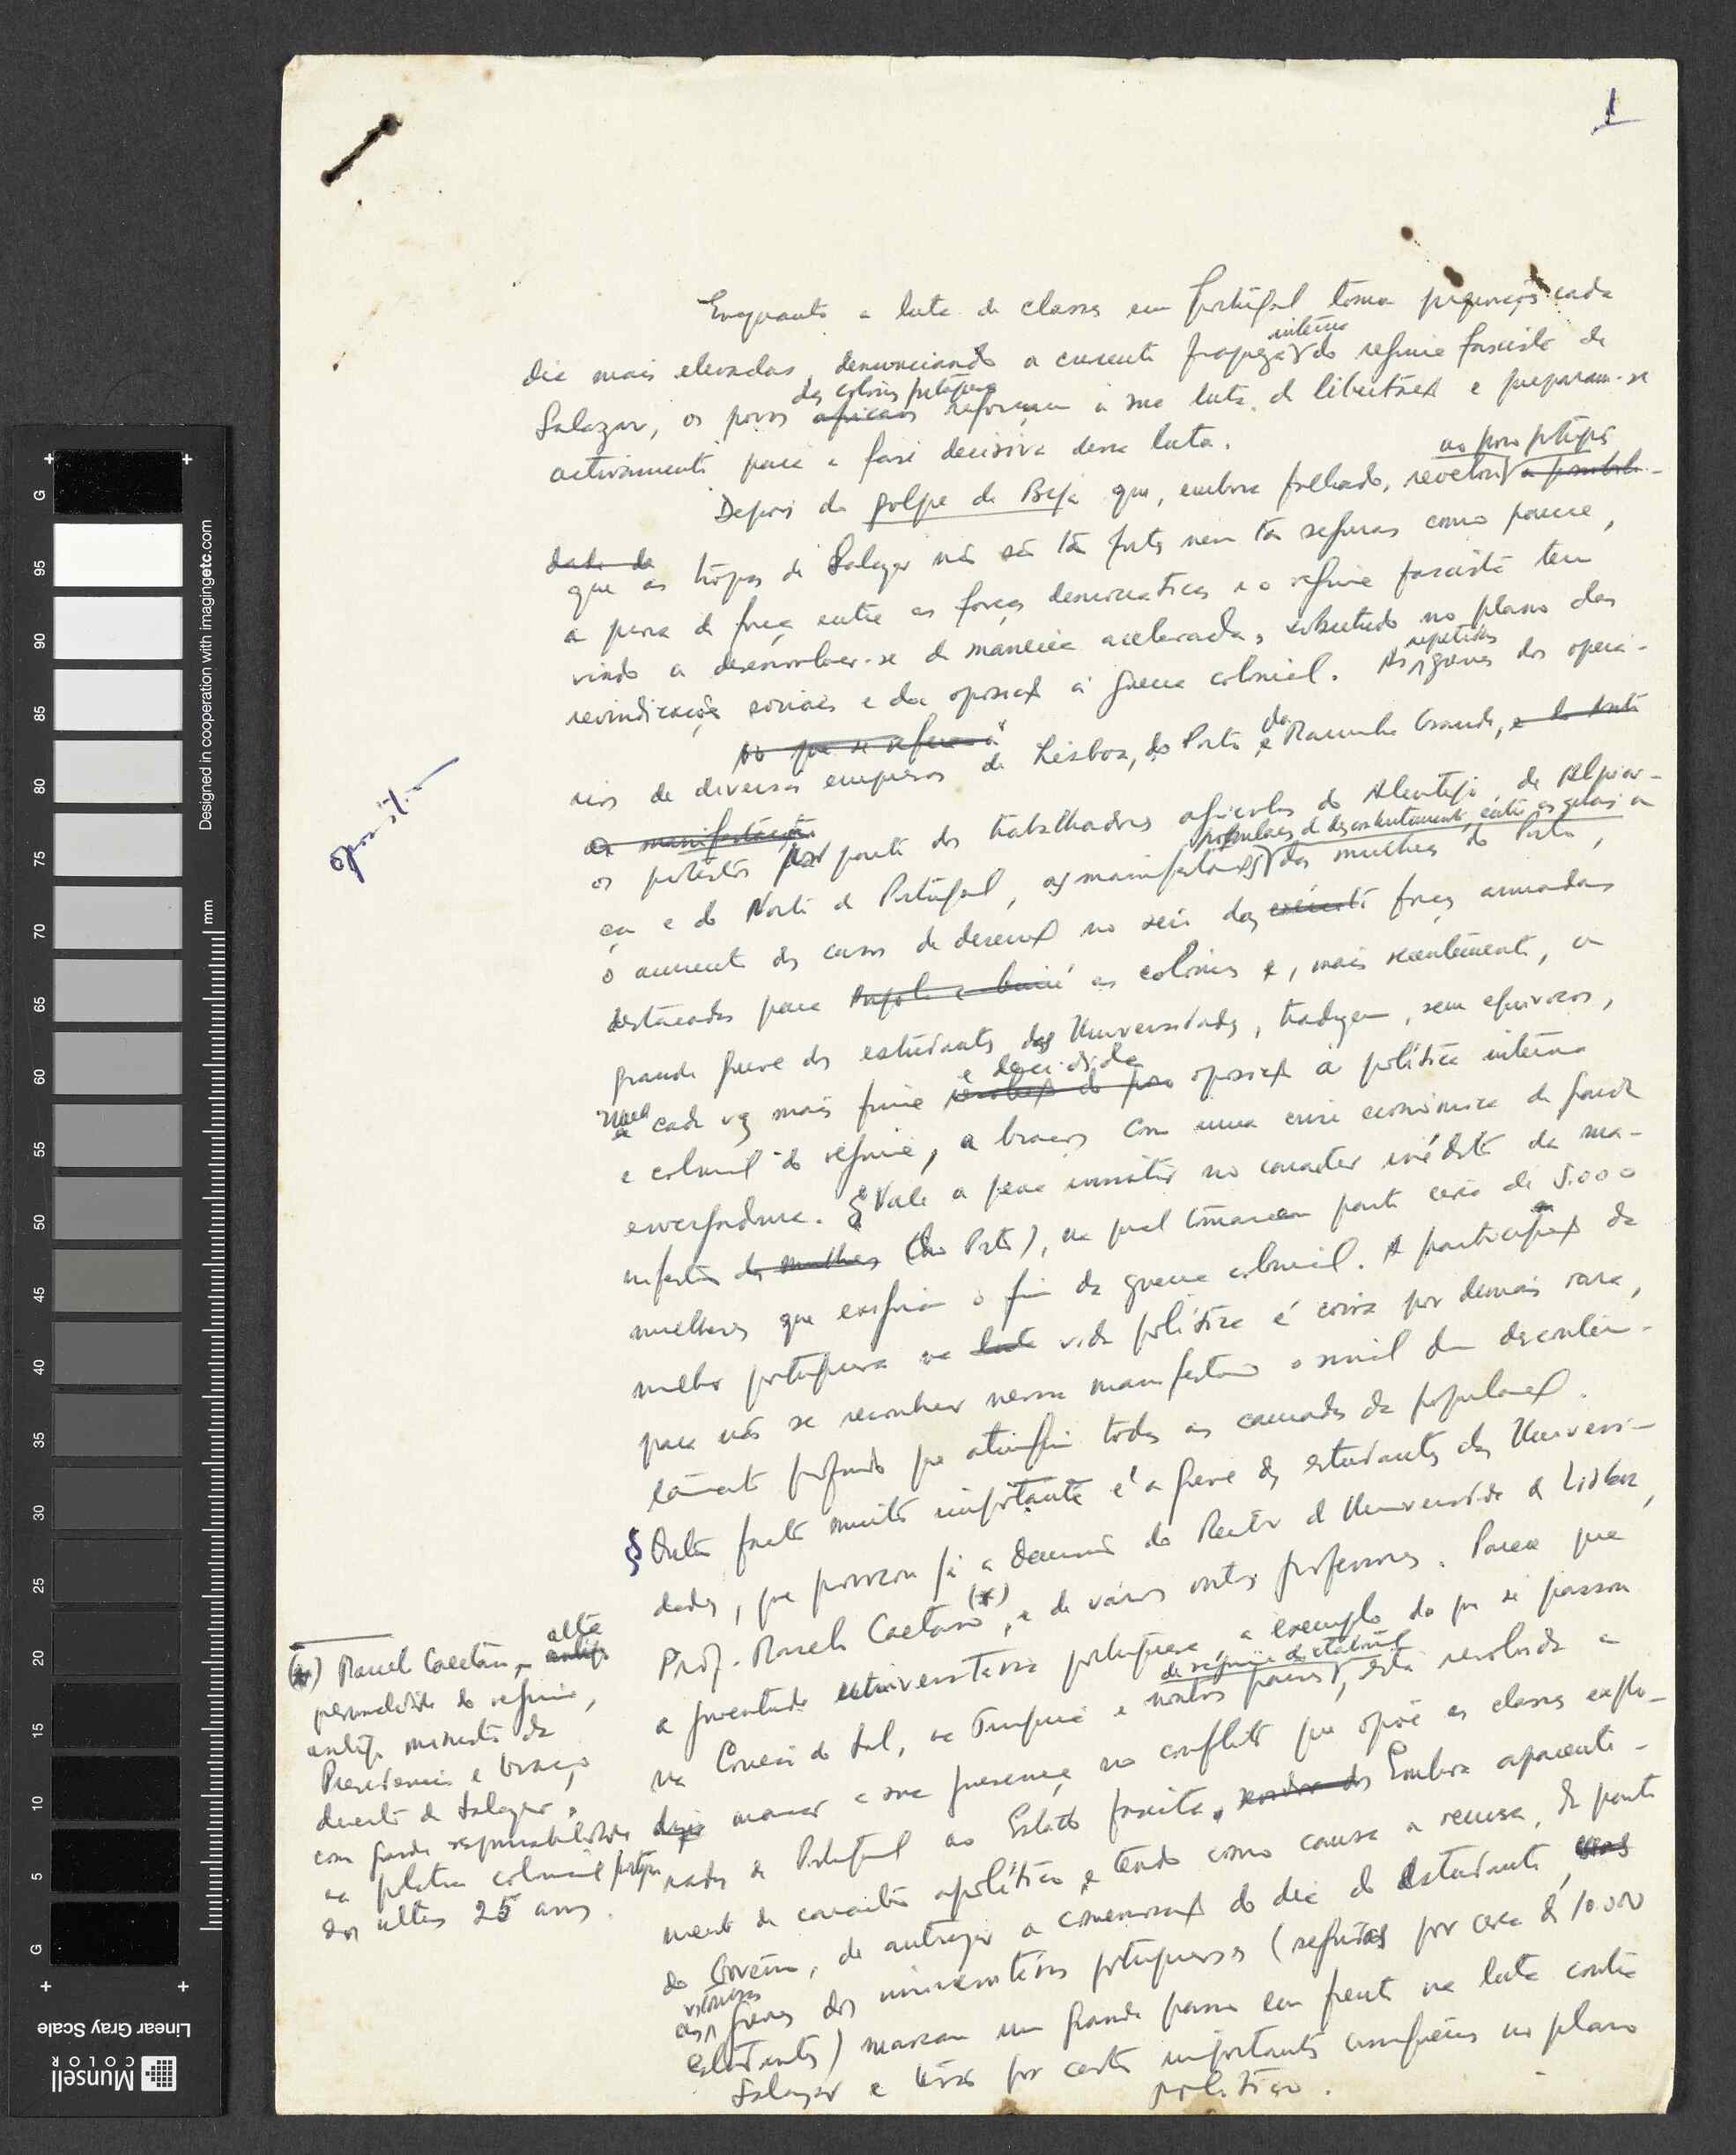 1
Enquanto a luta de classes em Portugal toma proporções cada
dia mais elevadas, denunciando a crescente fraqueza interna do regime fascista de
Salazar, os povos africanos das colónias portuguesas reforçam a sua luta de libertação e preparam-se
activamente para a fase decisiva dessa luta.
Depois do golpe de Beja que, embora falhado, revelou ao povo português a possibili-
dade de
que as tropas de Salazar não são tão fortes nem tão seguras como parece,
a prova de força entre as forças democraticas e o regime fascista tem
vindo a desenvolver-se de maneira acelerada, sobretudo no plano das
reivindicações sociais e da oposição à guerra colonial. As repetidas greves dos operá-
No que se refere à
rios de diversas empresas de Lisboa, do Porto e da Marinha Grande,
as manifestações
os protestos por parte dos trabalhadores agricolas do Alentejo, de Alpiar-
ça e do Norte de Portugal, as manifestações populares de descontentamento, entre as quais a das mulheres do Porto,
o aumento dos casos de deserção no seio das exército forças armadas
destacadas para Angola e Guiné as colónias e, mais recentemente, a
grande greve dos estudantes das Universidades, traduzem, sem equivocos,
uma cada vez mais firme e decidida oposição à política interna
e colonial do regime, a braços com uma crise económica de grande
envergadura. § Vale a pena insistir no caracter inédito da ma-
nifestação das mulheres (do Porto), na qual tomaram parte cerca de 5.000
mulheres que exigiam o fim da guerra colonial. A participação da
mulher portuguesa na luta vida política é coisa por demais rara,
para não se reconhecer nessa manifestação o sinal dum desconten-
tamento profundo que atingiu todas as camadas da população.
§ Outro facto muito importante é a greve dos estudantes das Universi-
dades, que provocou já a demissão do Reitor da Universidade de Lisboa,
Prof. Marcelo Caetano (*), e de vários outros professores. Parece que
a juventude universitária portuguesa, a exemplo do que se passou
na Coreia do Sul, na Turquia e noutros países de regime ditatorial, está resolvida a
marcar a sua presença no conflito que opõe as classes explo-
radas de Portugal ao Estado fascista. Embora aparente-
mente de caracter apolítico e tendo como causa a recusa, da parte
do Govêrno, de autorizar a comemoração do dia do Estudante,
as vitoriosas greves dos universitários portugueses (seguidas por cerca de 10.000
estudantes) marcam um grande passo em frente na luta contra
Salazar e terão por certo importantes consequências no plano
político.
(*) Marcelo Caetano, alta antiga
personalidade do regime,
antigo ministro da
Presidencia e braço
direito de Salazar,
com grande responsabilidade
na politica colonial portuguesa
dos ultimos 25 anos.